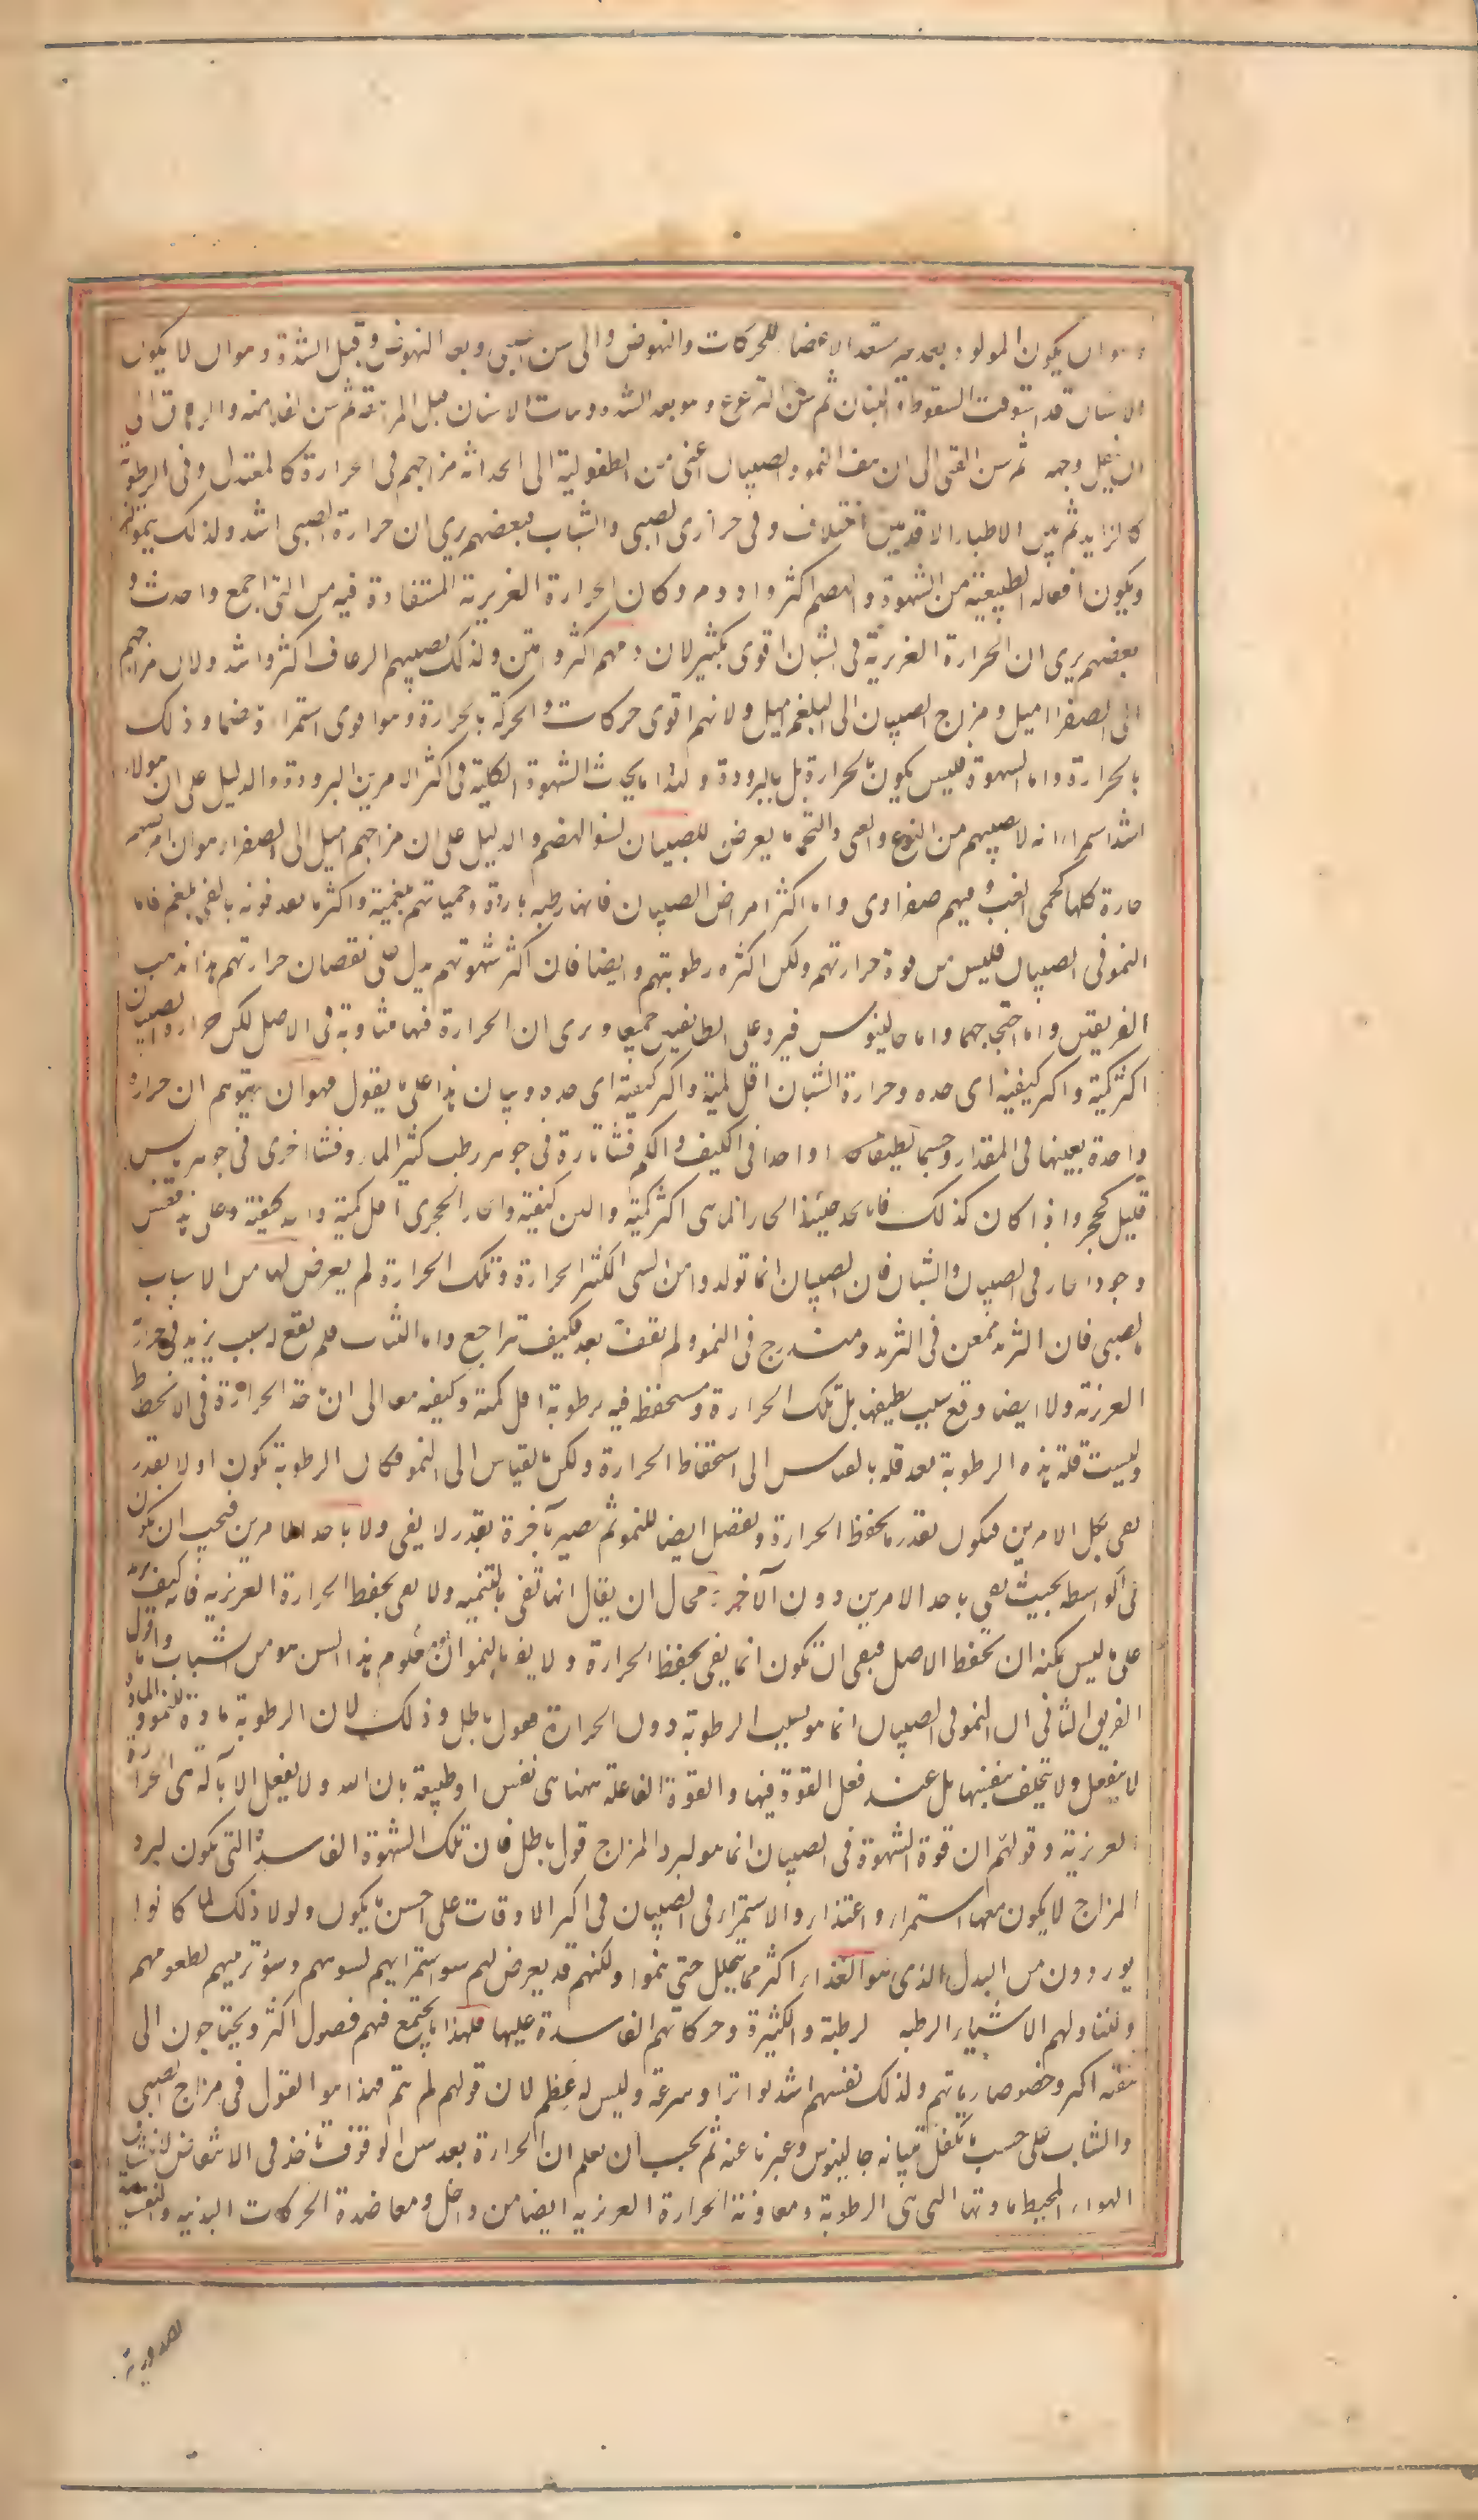 وهو ان يكون المولود بعد غير مستعد الاعضاء للحركات والنهوض والى سن الصبى وهو بعد النهوض وقبل الشدة وهو ان لا يكون
الاسنان قد استوفت السقوط والنبات ثم سن الترعرع وهو بعد الشدة ونبات الاسنان قبل المراهقة ثم سن الغلامية والرهاق الى
ان يبقل وجهه ثم سن الفتى الى ان يقف النمو والصبيان اعنى من الطفولية الى الحداثة مزاجهم فى الحرارة كالمعتدل وفى الرطوبة
كالزايد ثم بين الاطباء الاقدمين اختلاف وفى حرارتى الصبى والشاب فبعضهم يرى ان حرارة الصبى اشد ولذلك ينمو اكثر
ويكون افعاله الطبيعية من الشهوة والهضم اكثر وادوم وكان الحرارة الغريزية المستفادة فيه من المنى اجمع واحدث و
بعضهم يرى ان الحرارة الغريزية فى الشبان اقوى بكثير لان دمهم اكثر وامتن ولذلك يصيبهم الرعاف اكثر واشد ولان مزاجهم
الى الصفرا اميل ومزاج الصبيان الى البلغم اميل ولانهم اقوى حركات والحركة بالحرارة وهم اقوى استمراء وهضما وذلك
بالحرارة واما الشهوة فليس يكون بالحرارة بل بالبرودة ولهذا ما يحدث الشهوة الكلبية فى اكثر الامر من البرودة والدليل على ان هولاء
اشد استمراء انه لا يصيبهم من التهوع والقى والتخمة ما يعرض للصبيان لسوء الهضم والدليل على ان مزاجهم اميل الى الصفراء هو ان امراضهم
حارة كلها كحمى الغب وقيهم صفراوى واما اكثر امراض الصبيان فانها رطبة باردة وحمياتهم بلغمية واكثر ما يقذفونه بالقى بلغم فاما
النمو فى الصبيان فليس من قوة حرارتهم ولكن لكثرة رطوبتهم وايضا فان كثرة شهوتهم يدل على نقصان حرارتهم هذا مذهب
الفريقين واحتجاجهما واما جالينوس فيرد على الطائفتين جميعا ويرى ان الحرارة فيهما متساوية فى الاصل لكن حرارة الصبيان
اكثر كمية واقل كيفية اى حده وحرارة الشبان اقل كمية واكثر كيفية اى حده وبيان هذا على ما يقول فهو ان يتوهم ان حرارة
واحدة بعينها فى المقدار وجسما لطيفا حارا واحدا فى الكيف والكم فشا تارة فى جوهر رطب كثير كالماء وفشا اخرى فى جوهر يابس
قليل كالحجر واذا كان كذلك فانا نجد حينئذ الحار المائى اكثر كمية والين كيفية والحار الحجرى اقل كمية واحد كيفية وعلى هذا فقس
وجود الحار فى الصبيان والشبان فان الصبيان انما تولدوا من المنى الكثير الحرارة وتلك الحرارة لم يعرض لها من الاسباب
فالصبى فان التزيد ممعن فى التزيد ومتدرج فى النمو ولم يقف بعد فكيف تراجع واما الشاب فلم يقع له سبب يزيد فى حرارته
الغريزية ولا ايضا وقع سبب يطفيها بل تلك الحرارة مستحفظة فيه برطوبة اقل كمية وكيفية معا الى ان ياخذ الحرارة فى الانحطاط
وليست قلة هذه الرطوبة تعد قلة بالقياس الى استحفاظ الحرارة ولكن بالقياس الى النمو فكان الرطوبة تكون اولا بقدر
يفى بكل الامرين فيكون بقدر ما يحفظ الحرارة ويفضل ايضا للنمو ثم تصير بآخرة بقدر لا يفى ولا باحد الامرين فيجب ان يكون
فى الواسطة بحيث يفى باحد الامرين دون الآخر ومحال ان يقال انها تفى بالتنمية ولا تفى بحفظ الحرارة الغريزية فانه كيف يزيد
على ما ليس يمكنه ان يحفظ الاصل فبقى ان تكون انما يفى بحفظ الحرارة ولا يفى بالنمو ومعلوم ان هذا السن هو سن الشباب واما قول
الفريق الثانى ان النمو فى الصبيان انما هو بسبب الرطوبة دون الحرارة فقول باطل وذلك لان الرطوبة مادة للنمو والمادة
لا ينفعل ولا يتخلق بنفسها بل عند فعل القوة فيها والقوة الفاعلة ههنا هى نفس او طبيعة باذن الله ولا يفعل الا بآلة هى الحرارة
الغريزية وقولهم ان قوة الشهوة فى الصبيان انما هو لبرد المزاج قول باطل فان تلك الشهوة الفاسدة التى تكون لبرد
المزاج لا يكون معها استمراء واغتذاء والاستمراء فى الصبيان فى اكثر الاوقات على احسن ما يكون ولولا ذلك لما كانوا
يوردون من البدل الذى هو الغذاء اكثر مما يتحلل حتى ينموا ولكنهم قد يعرض لهم سوء استمرائهم لسوء شرههم وسوء ترتيبهم لمطعومهم
ولتناولهم الاشياء الرطبه الرطبة والكثيرة وحركاتهم الفاسدة عليها فلهذا ما يجتمع فيهم فضول اكثر ويحتاجون الى
تنقية اكثر وخصوصا رياتهم ولذلك نفسهم اشد تواترا وسرعة وليس له عظم لان قوتهم لم تتم فهذا هو القول فى مزاج الصبى
والشاب على حسب ما تكفل ببيانه جالينوس وعبرنا عنه ثم يجب ان يعلم ان الحرارة بعد سن الوقوف تاخذ فى الانتقاص لانتشاف
الهواء المحيط مادتها التى هى الرطوبة ومعاونة الحرارة الغريزية ايضا من داخل ومعاضدة الحركات البدنية والنفسانية